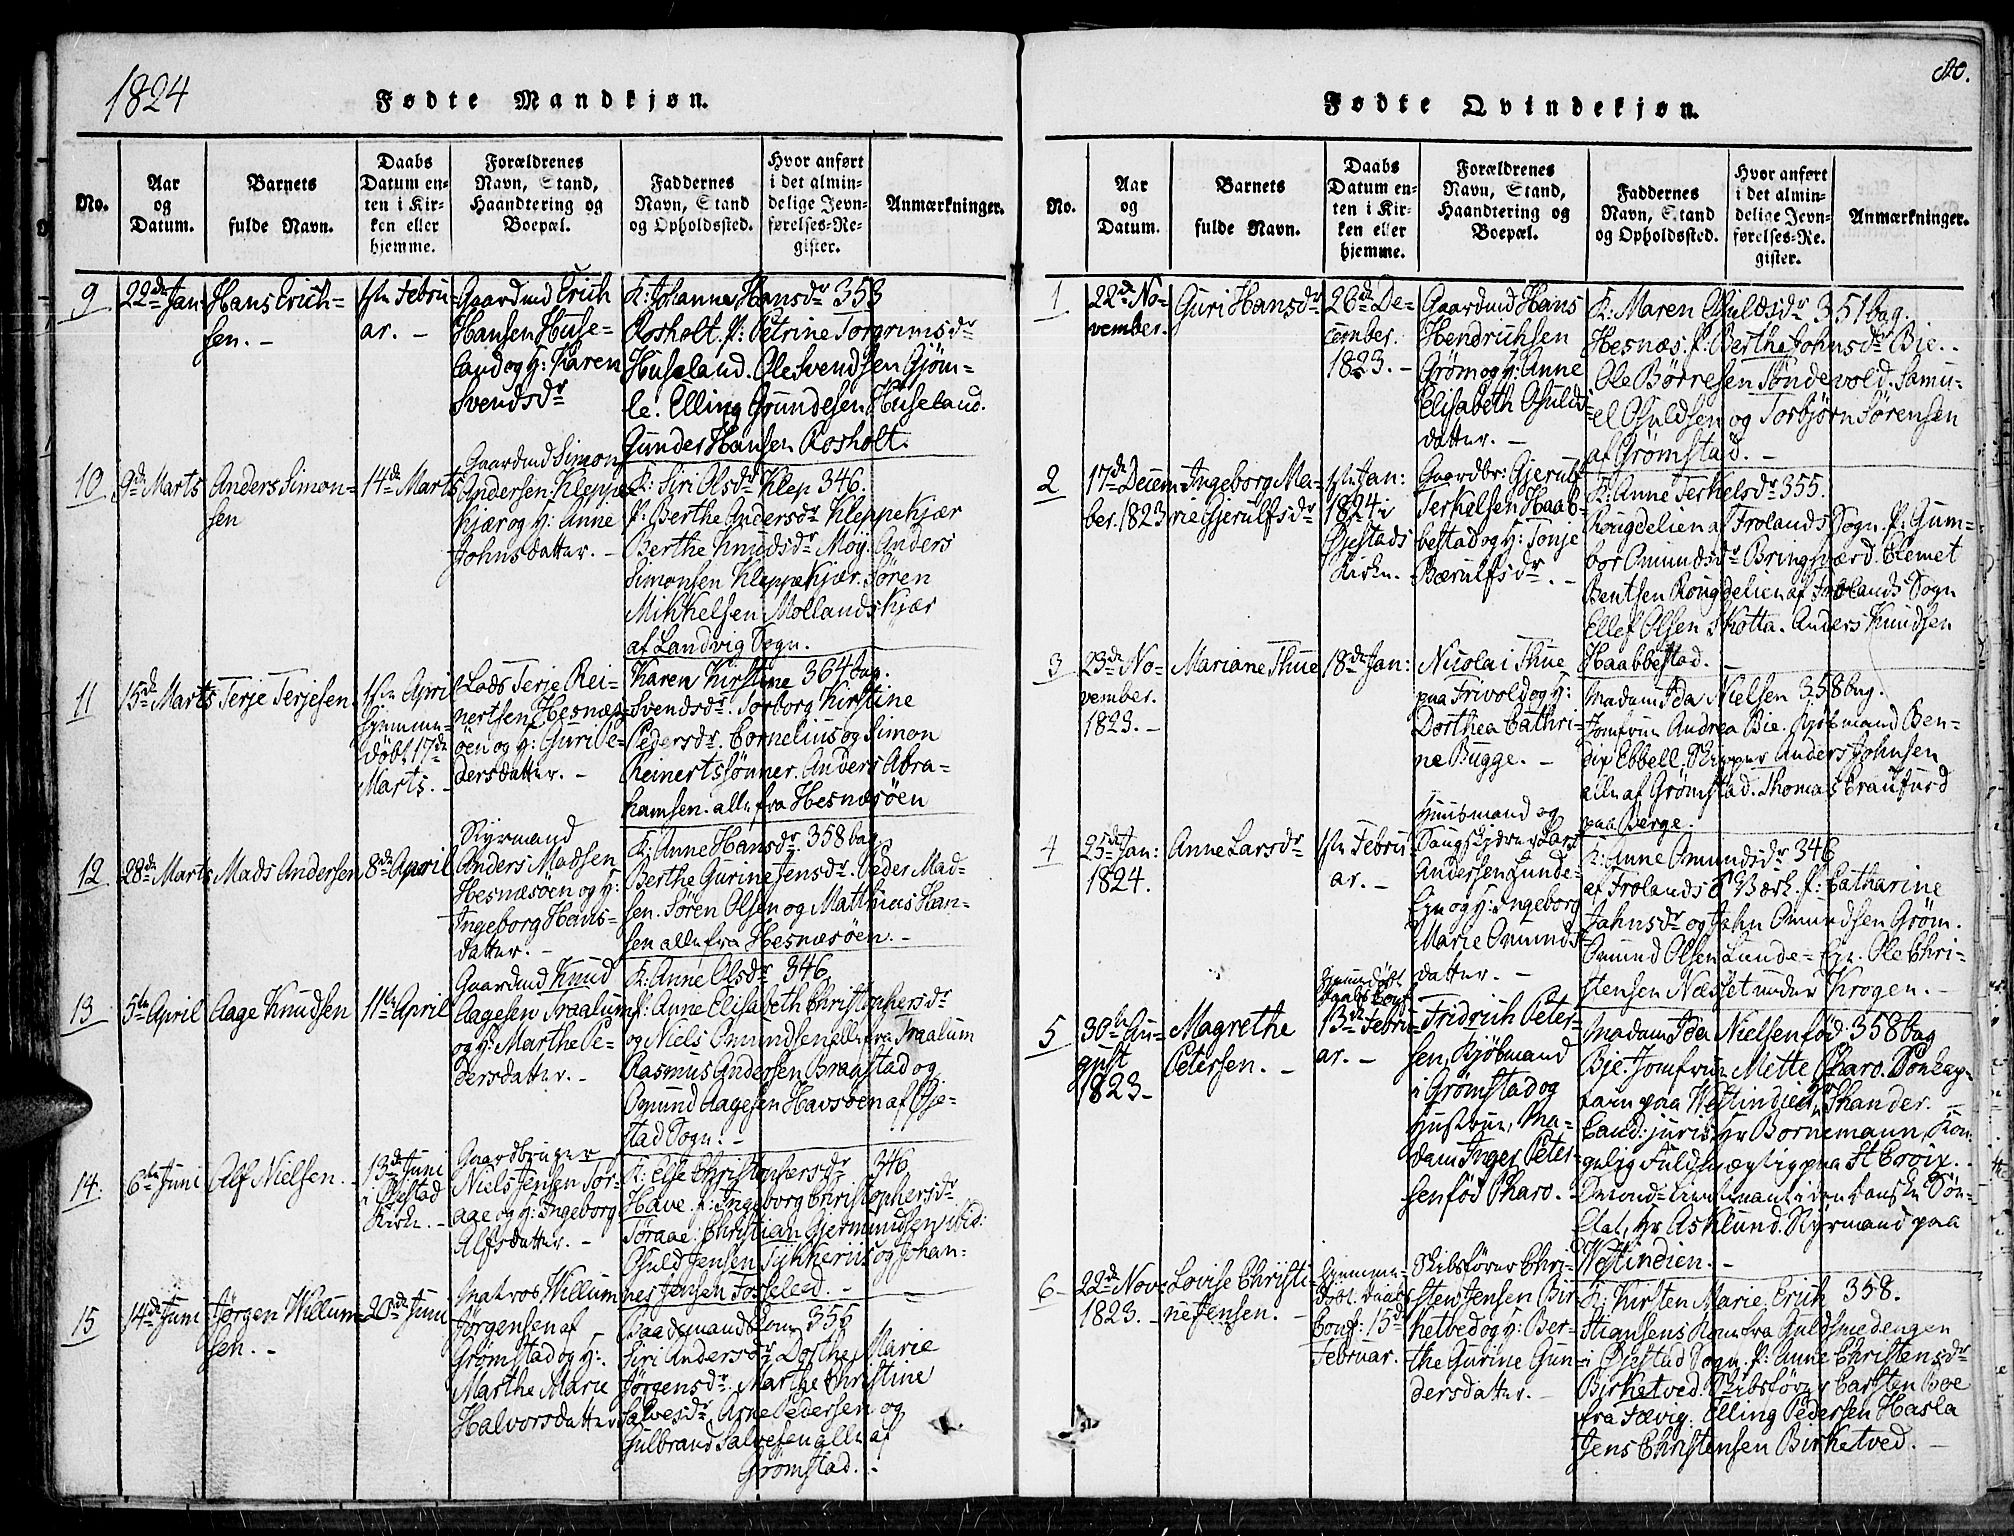 1824
Fødte Mandkjøn.
No.
Aar
og
Datum.
Barnets
fulde Navn.
Daabs
Datum en-
ten i Kir-
ken eller
hjemme.
Forældrenes
Navn, Stand,
Haandtering og
Boepæl.
Faddernes
Navn, Stand
og Opholdssted.
Hvor anført
i det almin-
delige Jevn-
førelses-Re-
gister.
Anmærkninger.
9
22de Jan
Hans Erich-
sen. -
1ste Febru-
ar. -
Gaardmd Erich
Hansen Huse-
land og H: Karen
Svendsdr
K: Johanne Hansdr 353
Rosholt. P: Petrine Torgrimsdr
Huseland. Ole Svendsen Gjöm-
le. Elling Gundesen Huseland.
Gunder Hansen Rosholt.
10
9de Marts
Anders Simon-
sen
14de Marts
Gaardmd Simon
Andersen Kleppe-
kjær og H: Anne
Johnsdatter. -
K: Siri Olsdr Klep 346.
P: Berthe Andersdr Kleppekjær
Berthe Knudsdr Moy. Anders
Simonsen Kleppekjær. Sören
Mikkelsen Mollandskjær
af Landvig Sogn.
11
15de Marts
Terje Terjesen
1ste April
hjemme-
döbt 17de
Marts. -
Lods Terje Rei-
nertsen Hesnæs-
öen og H: Guri Pe-
dersdatter. -
Karen Kirstine 364 bag.
Svendsdr. Torborg Kirstine
Pedersdr. Cornelius og Simon
Reinertssönner. Anders Abra-
hamsen. alle fra Hesnæsöen
12
28de Marts
Mads Andersen
8de April
Styrmand
Anders Madsen
Hesnæsöen og H:
Ingeborg Hans-
datter. -
K: Anne Hansdr. 358 bag
Berthe Gurine Jensdr. Peder Mad-
sen. Sören Olsen og Matthias Han-
sen alle fra Hesnæsöen. -
13
5te April
Aage Knudsen
11te April
Gaardmd Knud
Aagesen Traalum
og H: Marthe Pe-
dersdatter. -
K: Anne Olsdr 346
P: Anne Elisabeth Christophersdr
og Niels Omundsen alle fra Traalum
Rasmus Andersen Braastad og
Omund Aagesen Havsöen af Öje-
stad Sogn. -
14.
6te Juni
Alf Nielsen. -
13de Juni
i Öjestad
Kirke. -
Gaardbruger
Niels Jensen Tor-
aae og H: Ingeborg
Alfsdatter. -
K: Else Christophersdr 346
Have. P: Ingeborg Christophersdr
Toraae. Christian Gjermundsen ibid:
Osuld Jensen og Johan-
nes Jensen Fosseleed. -
15
14de Juni
Jörgen Willum-
sen. -
20de Juni
Matros Willum
Jörgensen af
Grömstad og H:
Marthe Marie
Halvorsdatter
Baadsmands Kone 355
Siri Andersdr. Dorthe Marie
Jörgensdr. Marthe Christine
Salvesdr. Arne Pedersen og
Gulbrand Salvesen alle af
Grömstad. -
80.
Fødte Qvindekjøn.
No.
Aar
og
Datum.
Barnets
fulde Navn.
Daabs
Datum en-
ten i Kir-
ken eller
hjemme.
Forældrenes
Navn, Stand,
Haandtering og
Boepæl.
Faddernes
Navn, Stand
og Opholdssted.
Hvor anført
i det almin-
delige Jevn-
førelses-Re-
gister.
Anmærkninger.
1
22de No-
vember.
Guri Hansdr
26de De-
cember.
1823. -
Gaardmd Hans
Hendrichsen
Gröm og H: Anne
Elisabeth Osulds-
datter. -
K. Maren Osuldsdr 351 bag.
Hesnæs. P: Berthe Johnsdr Bie. -
Ole Börresen Söndevold. Samu-
el Osuldsen og Torbjörn Sörensen
af Grömstad. -
2
17de Decem-
ber. 1823
Ingeborg Ma-
rie Gjerulfsdr
1ste Jan:
1824. i
Öjestads
Kirke. -
Gaardbr: Gjerulf
Terkelsen Haab-
bestad og H: Tonje
Bærulfsdr. -
K: Anne Terkelsdr 355.
Rougdelien af Frolands Sogn. P: Gum-
bor Omundsdr Bringsværd. Clemet
Bentsen Rougdelien af Frolands Sogn
Ellef Olsen Skotta. Anders Knudsen
Haabbestad. -
3
23de No-
vember.
1823. -
Mariane Thue
18de Jan:
Nicolai Thue
paa Frivold og H:
Dorthea Cathri-
ne Bugge. -
Madam Ida Nielsen 358 bag.
Jomfrue Andrea Bie. Kjöbmand Ben-
dix Ebbell. Skipper Anders Johnsen
alle af Grömstad. Thomas Craufurd
paa Berge.
4
25de Jan:
1824.
Anne Larsdr
1ste Febru-
ar. -
Huusmand og
Saugskjærer Lars
Andersen Lunde-
Egn og H: Ingeborg
Marie Omunds-
datter. -
K: Anne Omundsdr 346
af Frolands Værk. P: Catharine
Jahnsdr og Jahn Omundsen Gröm.
Omund Olsen Lunde-Egn. Ole Chri-
stensen Næsset under Krogen. -
5
30te Au-
gust
1823 -
Magrethe
Petersen. -
hjemmedöbt
Daabs Conf
13de Febru-
ar. -
Fridrich Peter-
sen, Kjöbmand
i Grömstad og
Hustrue, Ma-
dam Inger Peter-
sen föd Pharo. -
Madam Ida Nielsen föd 358 bag
Bie. Jomfrue Mette Pharo. Sönkap-
tain paa Westindien Hr Skander. -
Cand: juris Hr Bornemann, Kon-
gelig Fuldmægtig paa St Croix. -
Second-Lieutenant i den danske Sön-
Etat, Hr Asklund. Styrmand paa
Westindien. -
6
22de Nov:
1823. -
Lovise Christi-
ne Jensen. -
hjemme-
döbt. Daabs
Conf: 15de
Februar.
Skibsförer Chri-
sten Jensen Bir-
ketved og H: Ber-
the Gurine Gun-
dersdatter. -
K: Kirsten Marie Erich 358.
Stiansens Kone fra Guldsmedengen
i Öjestad Sogn. P: Anne Christensdr
Birketved. Skibsförer Carsten Boe
fra Fævig: Elling Pedersen Hasla
Jens Christensen Birketved. -